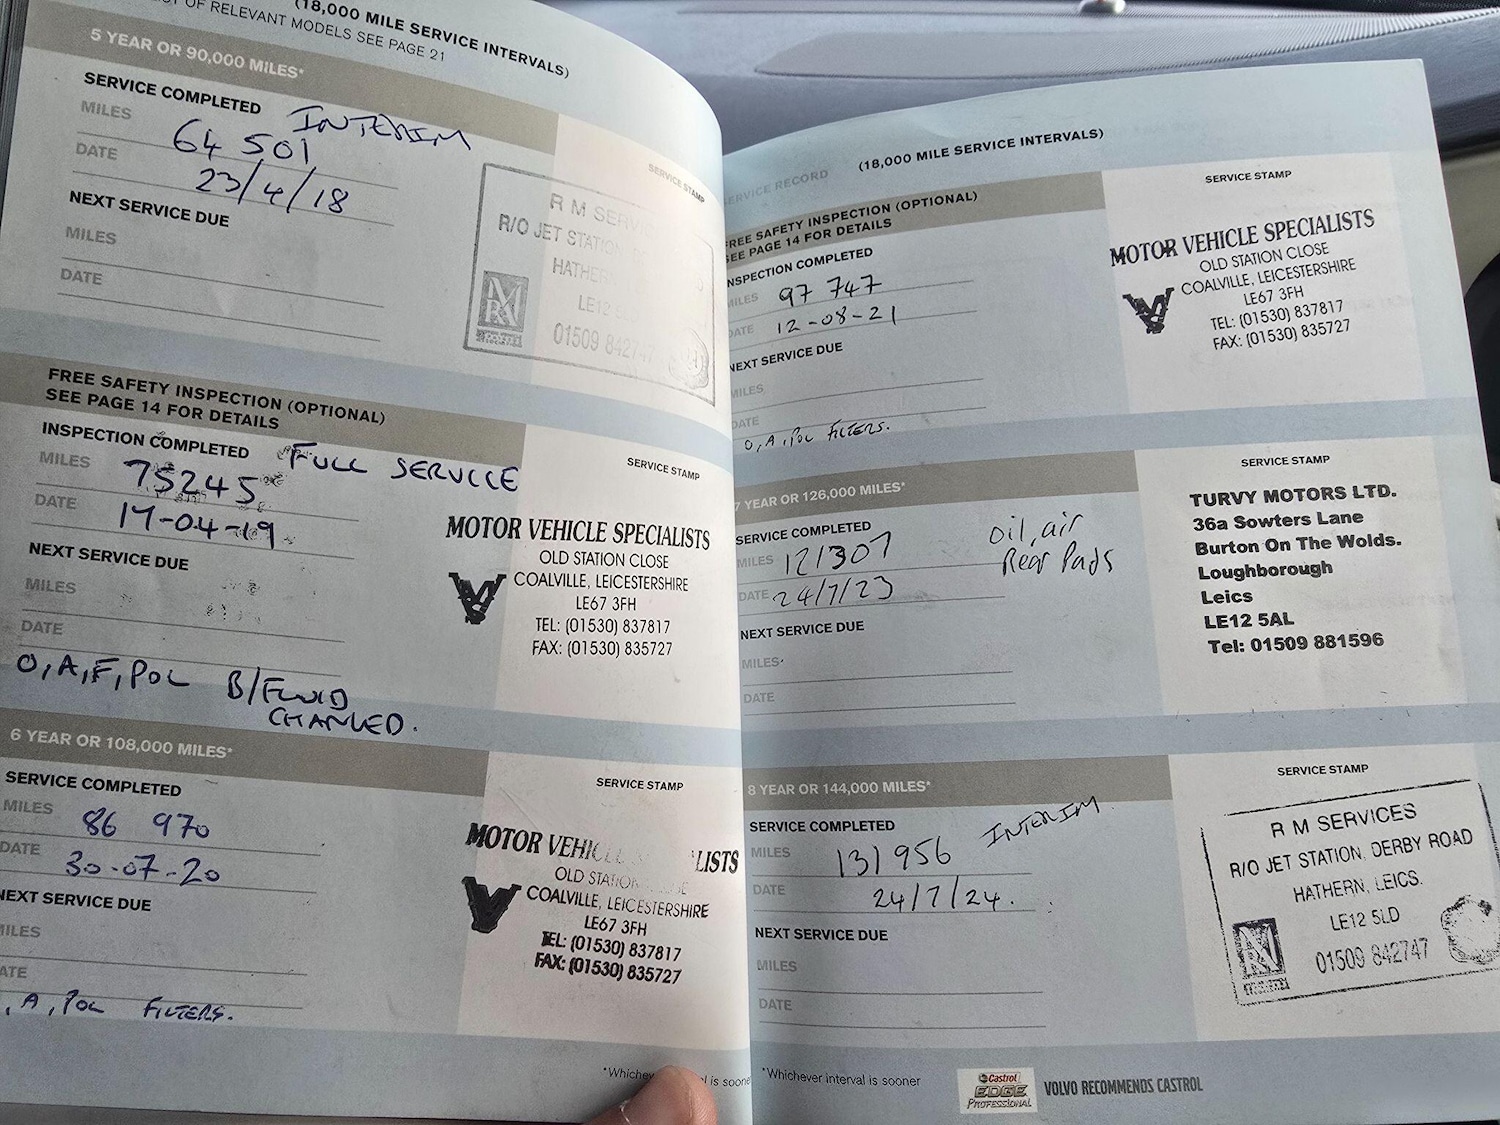 (18,000 MILE SERVICE INTERVALS)
OF RELEVANT MODELS SEE PAGE 21
5 YEAR OR 90,000 MILES*
SERVICE COMPLETED INTERIM
MILES 64 501
DATE 23/4/18
NEXT SERVICE DUE
MILES
DATE
SERVICE STAMP
R M SERV
R/O JET STATION
HATHERN
LE12 5
01509 842747
FREE SAFETY INSPECTION (OPTIONAL)
SEE PAGE 14 FOR DETAILS
INSPECTION COMPLETED FULL SERVICE
MILES 75245
DATE 17-04-19
NEXT SERVICE DUE
MILES
DATE
O, A, F, POL B/FLUID
CHANGED.
SERVICE STAMP
MOTOR VEHICLE SPECIALISTS
OLD STATION CLOSE
COALVILLE, LEICESTERSHIRE
LE67 3FH
TEL: (01530) 837817
FAX: (01530) 835727
6 YEAR OR 108,000 MILES*
SERVICE COMPLETED
MILES 86 970
DATE 30-07-20
NEXT SERVICE DUE
MILES
ATE
, A, POL FILTERS.
SERVICE STAMP
MOTOR VEHICLE LISTS
OLD STATION
COALVILLE, LEICESTERSHIRE
LE67 3FH
TEL: (01530) 837817
FAX: (01530) 835727
*Whichever is soone
SERVICE RECORD (18,000 MILE SERVICE INTERVALS)
FREE SAFETY INSPECTION (OPTIONAL)
SEE PAGE 14 FOR DETAILS
INSPECTION COMPLETED
MILES 97 747
DATE 12-08-21
NEXT SERVICE DUE
MILES
DATE
O, A, POL FILTERS.
SERVICE STAMP
MOTOR VEHICLE SPECIALISTS
OLD STATION CLOSE
COALVILLE, LEICESTERSHIRE
LE67 3FH
TEL: (01530) 837817
FAX: (01530) 835727
7 YEAR OR 126,000 MILES*
SERVICE COMPLETED
MILES 121307
DATE 24/7/23
oil, air
Rear Pads
NEXT SERVICE DUE
MILES
DATE
SERVICE STAMP
TURVY MOTORS LTD.
36a Sowters Lane
Burton On The Wolds.
Loughborough
Leics
LE12 5AL
Tel: 01509 881596
8 YEAR OR 144,000 MILES*
SERVICE COMPLETED INTERIM
MILES 131956
DATE 24/7/24.
NEXT SERVICE DUE
MILES
DATE
SERVICE STAMP
R M SERVICES
R/O JET STATION, DERBY ROAD
HATHERN, LEICS.
LE12 5LD
01509 842747
*Whichever interval is sooner
Castrol
EDGE
PROFESSIONAL
VOLVO RECOMMENDS CASTROL